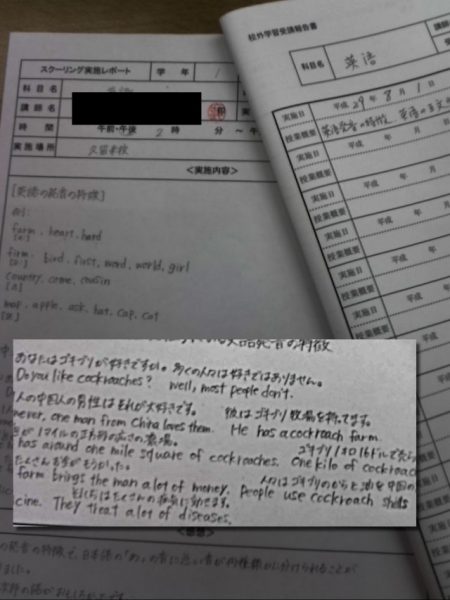 校外学習受講報告書
科目名 英語
実施日 平成 29年 8月 1
授業概要 英語発音の特徴、英語の
実施日 平成 年 月
授業概要
実施日 平成 年
授業概要
実施日 平成 年
授業概要
実施日 平成
授業概要
実施日
授業概要
スクーリング実施レポート 学 年 1
科目名 英語
講師名
時間 午前・午後 2 時 分 ～ 午
実施場所 久留米校
<実施内容>
[英語の発音の特徴]
例:
farm, heart, hard
firm, bird, first, word, world, girl
country, come, cousin
map, apple, ask, hat, cap, cat
発音の特徴
あなたはゴキブリが好きですか。多くの人々は好きではありません。
Do you like cockroaches? Well, most people don't.
人の中国人の男性はそれが大好きです。 彼はゴキブリ牧場を持ってます。
wever, one man from China loves them. He has a cockroach farm.
1マイルの 農場。 ゴキブリ1キロ16ドルで売
has around one mile square of cockroaches. One kilo of cockroac
たくさんお金がもうかった。
farm brings the man a lot of money. People use cockroach shells
cine. They treat a lot of diseases.
<感想>
発音の特徴で、日本語の「あ」の音に近い音が何種類かに分けられることが
ました。